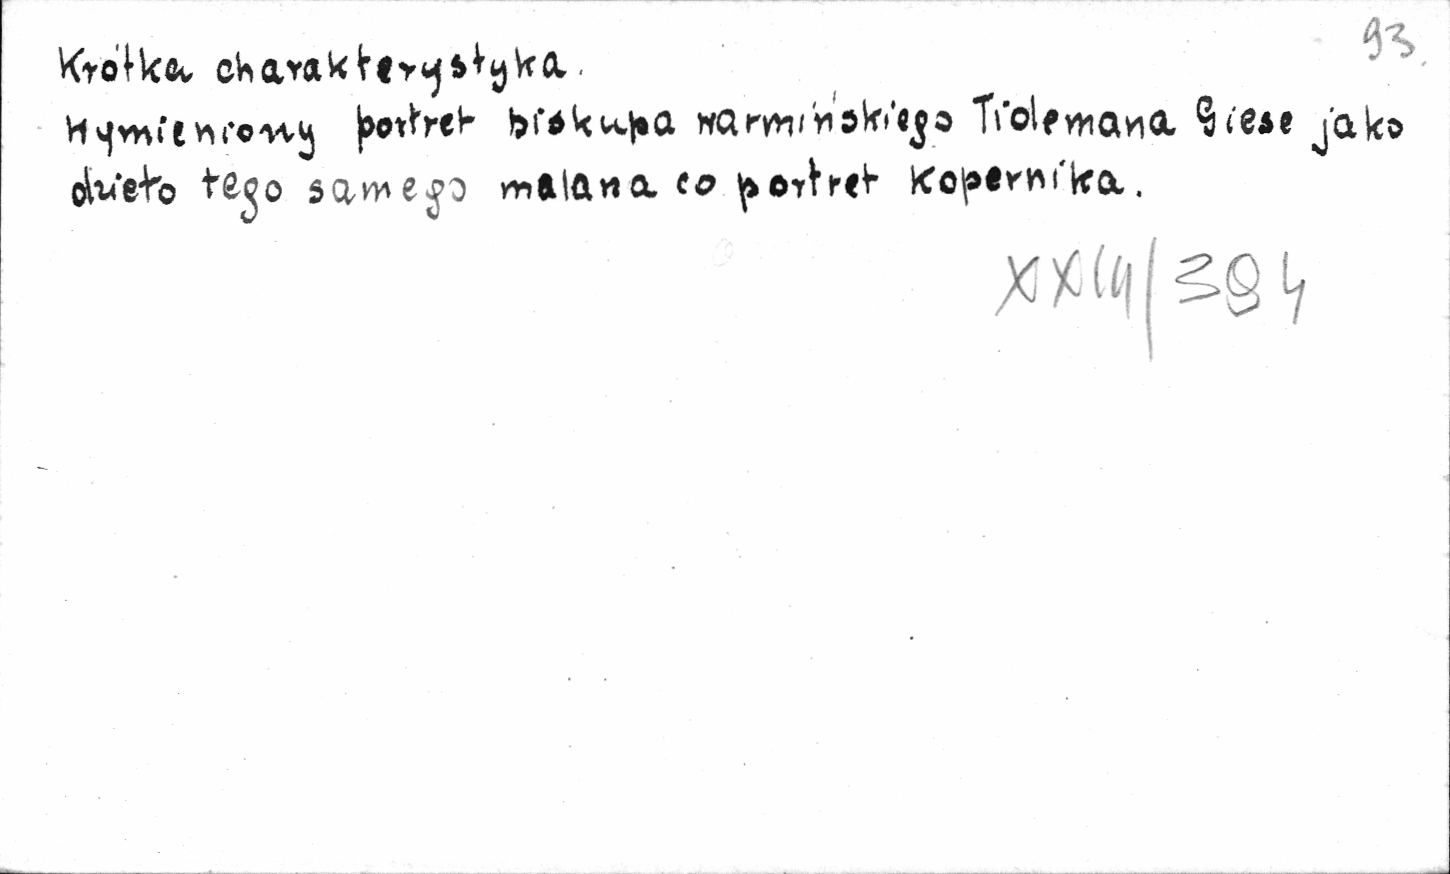 93.
Krótka charakterystyka.
Wymieniony portret biskupa warmińskiego Tiolemana Giese jako
dzieło tego samego malana co portret Kopernika.
/394